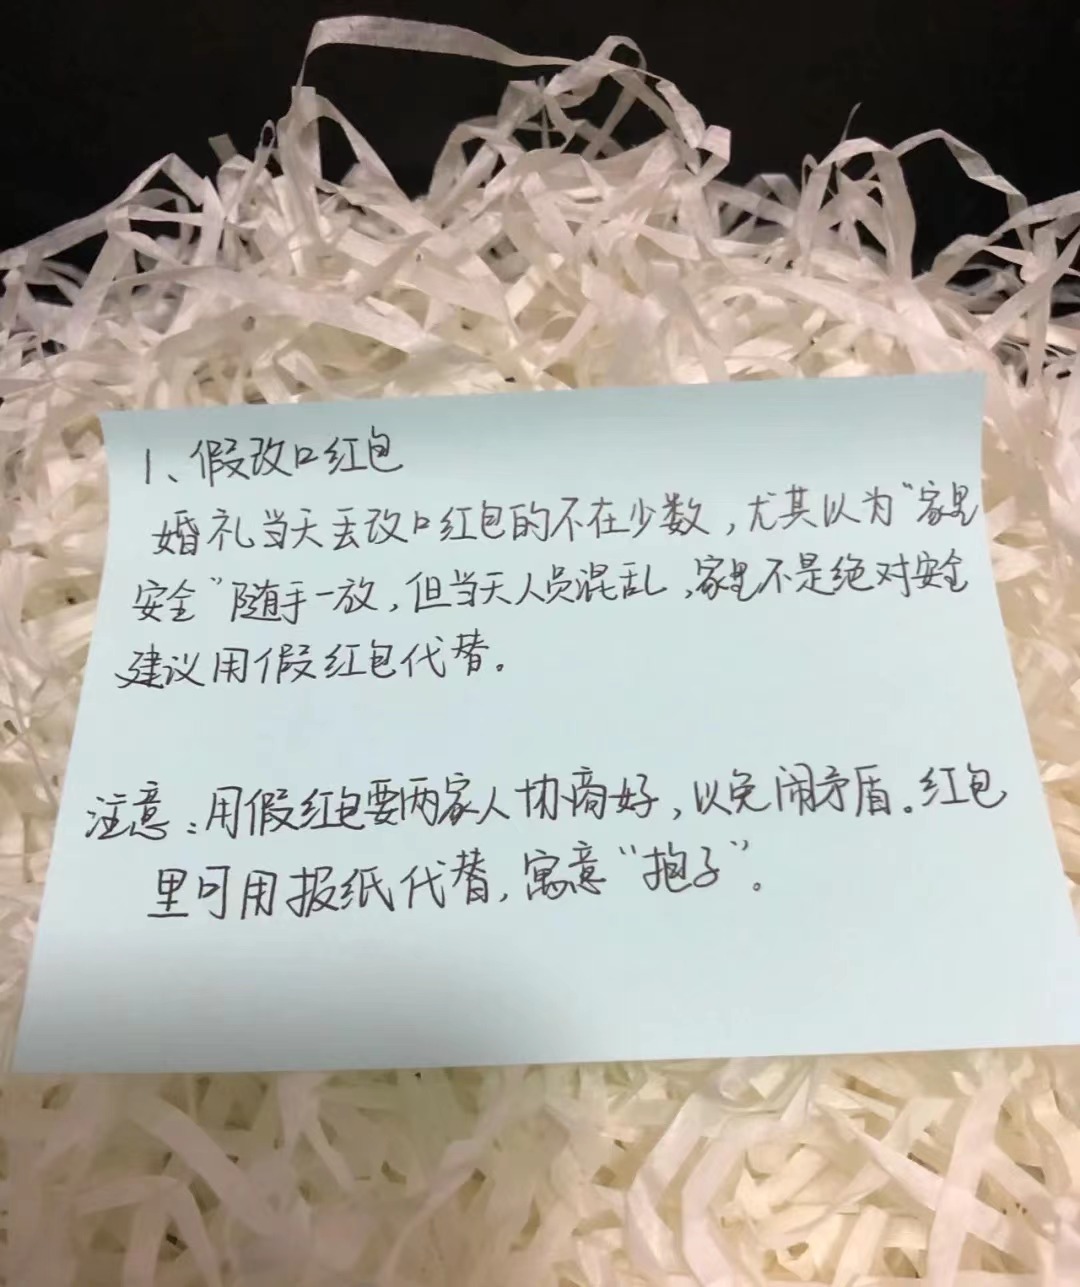 1、假改口红包
婚礼当天丢改口红包的不在少数，尤其以为“家里
安全”随手一放，但当天人员混乱，家里不是绝对安全
建议用假红包代替。
注意：用假红包要两家人协商好，以免闹矛盾。红包
里可用报纸代替，寓意“抱子”。